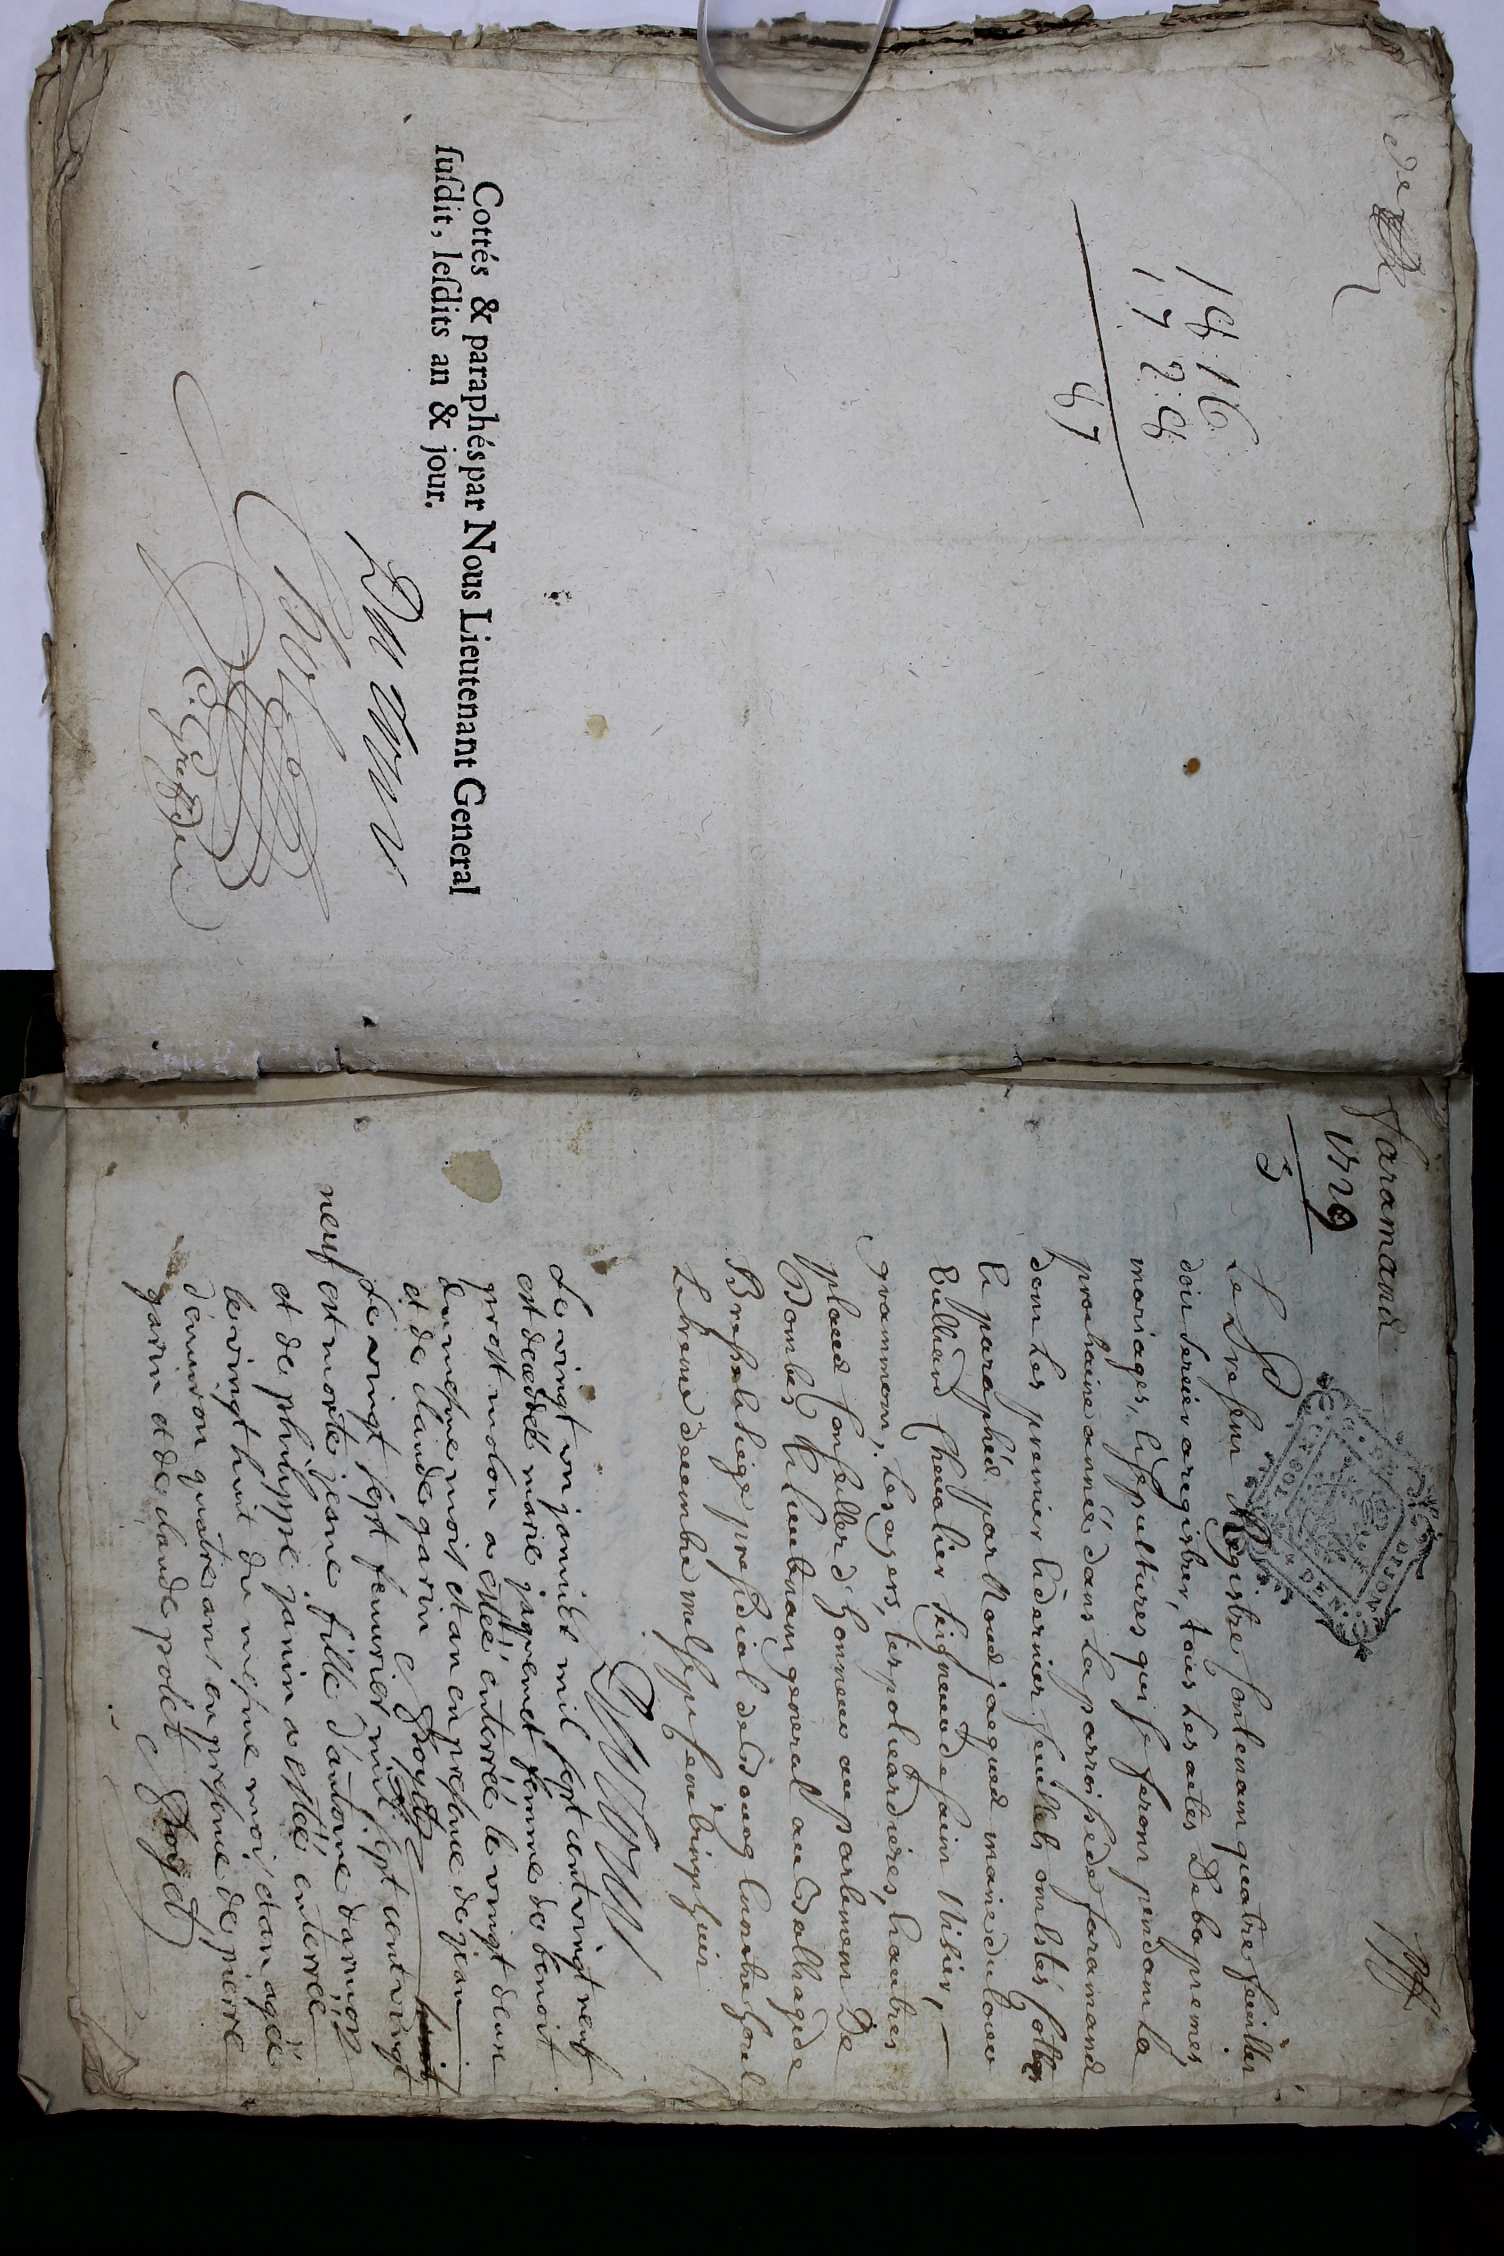 de
1816
1728
87
Cottés & paraphés par Nous Lieutenant General
susdit, lesdits an & jour.
faramand
1729
5
Le present Registre Contenant quatre feuillets
doit servir a registrer, tous les actes De baptemes,
mariages, & sepultures qui se feront pendant La
prochaine année dans La parroisse de faramand
dont Les premier & dernier feuillets ont estés Cottés
& paraphés par Nous jacques marie du
Chevalier seigneur de saint Didier,
grammont, Les ages, Les poliardieres, hautes
Conseiller d'honneur au parlement De
Dombes & Lieutenant general au Balliage de
Bresse & siege presidial de Bourg
Le trente decembre mil sept cent vingt huit
Le vingt un janvier mil sept cent vingt neuf
est decedée marie jaquemet femme de benoit
prost molon a estée enterrée le vingt deux
du mesme mois et an en presence de jean
et de claude garin C Goyet
Le vingt sept fevrier mil sept cent vingt
neuf est morte jeane fille d'antoine
et de philippe janin a estée enterrée
le vingt huit du mesme mois et an agée
d'environ quatre ans en presence de pierre
garin et de claude polet C Goyet